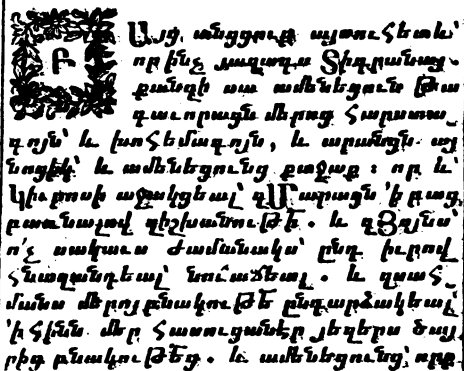 ԲԱյց անցցուք այսուհետև՝
որ ինչ յաղագս Տիգրանայ.
քանզի սա ամենեցուն թա
գաւորացն մերոց հարստա֊
գոյն՝ և խոհեմագոյն, և արանցն այ
նոցիկ՝ և ամենեցունց քաջաբ։ որ և՝
Կիւրոսի աջակցեալ՝ զՄարացն ՚ի բաց
բառնալով զիշխանութի. և զՅոյնս՝
ո՛չ սակաւս ժամանակս՝ ընդ իւրով
հնազանդեալ՝ նուաճեալ. և զսահ֊
մանս մերոյ բնակութե ընդարձակեալ՝
՚ի հինն մեր հասուցանէր յեզերս ծայ
րից բնակութեց. և ամենեցունց՝ որք